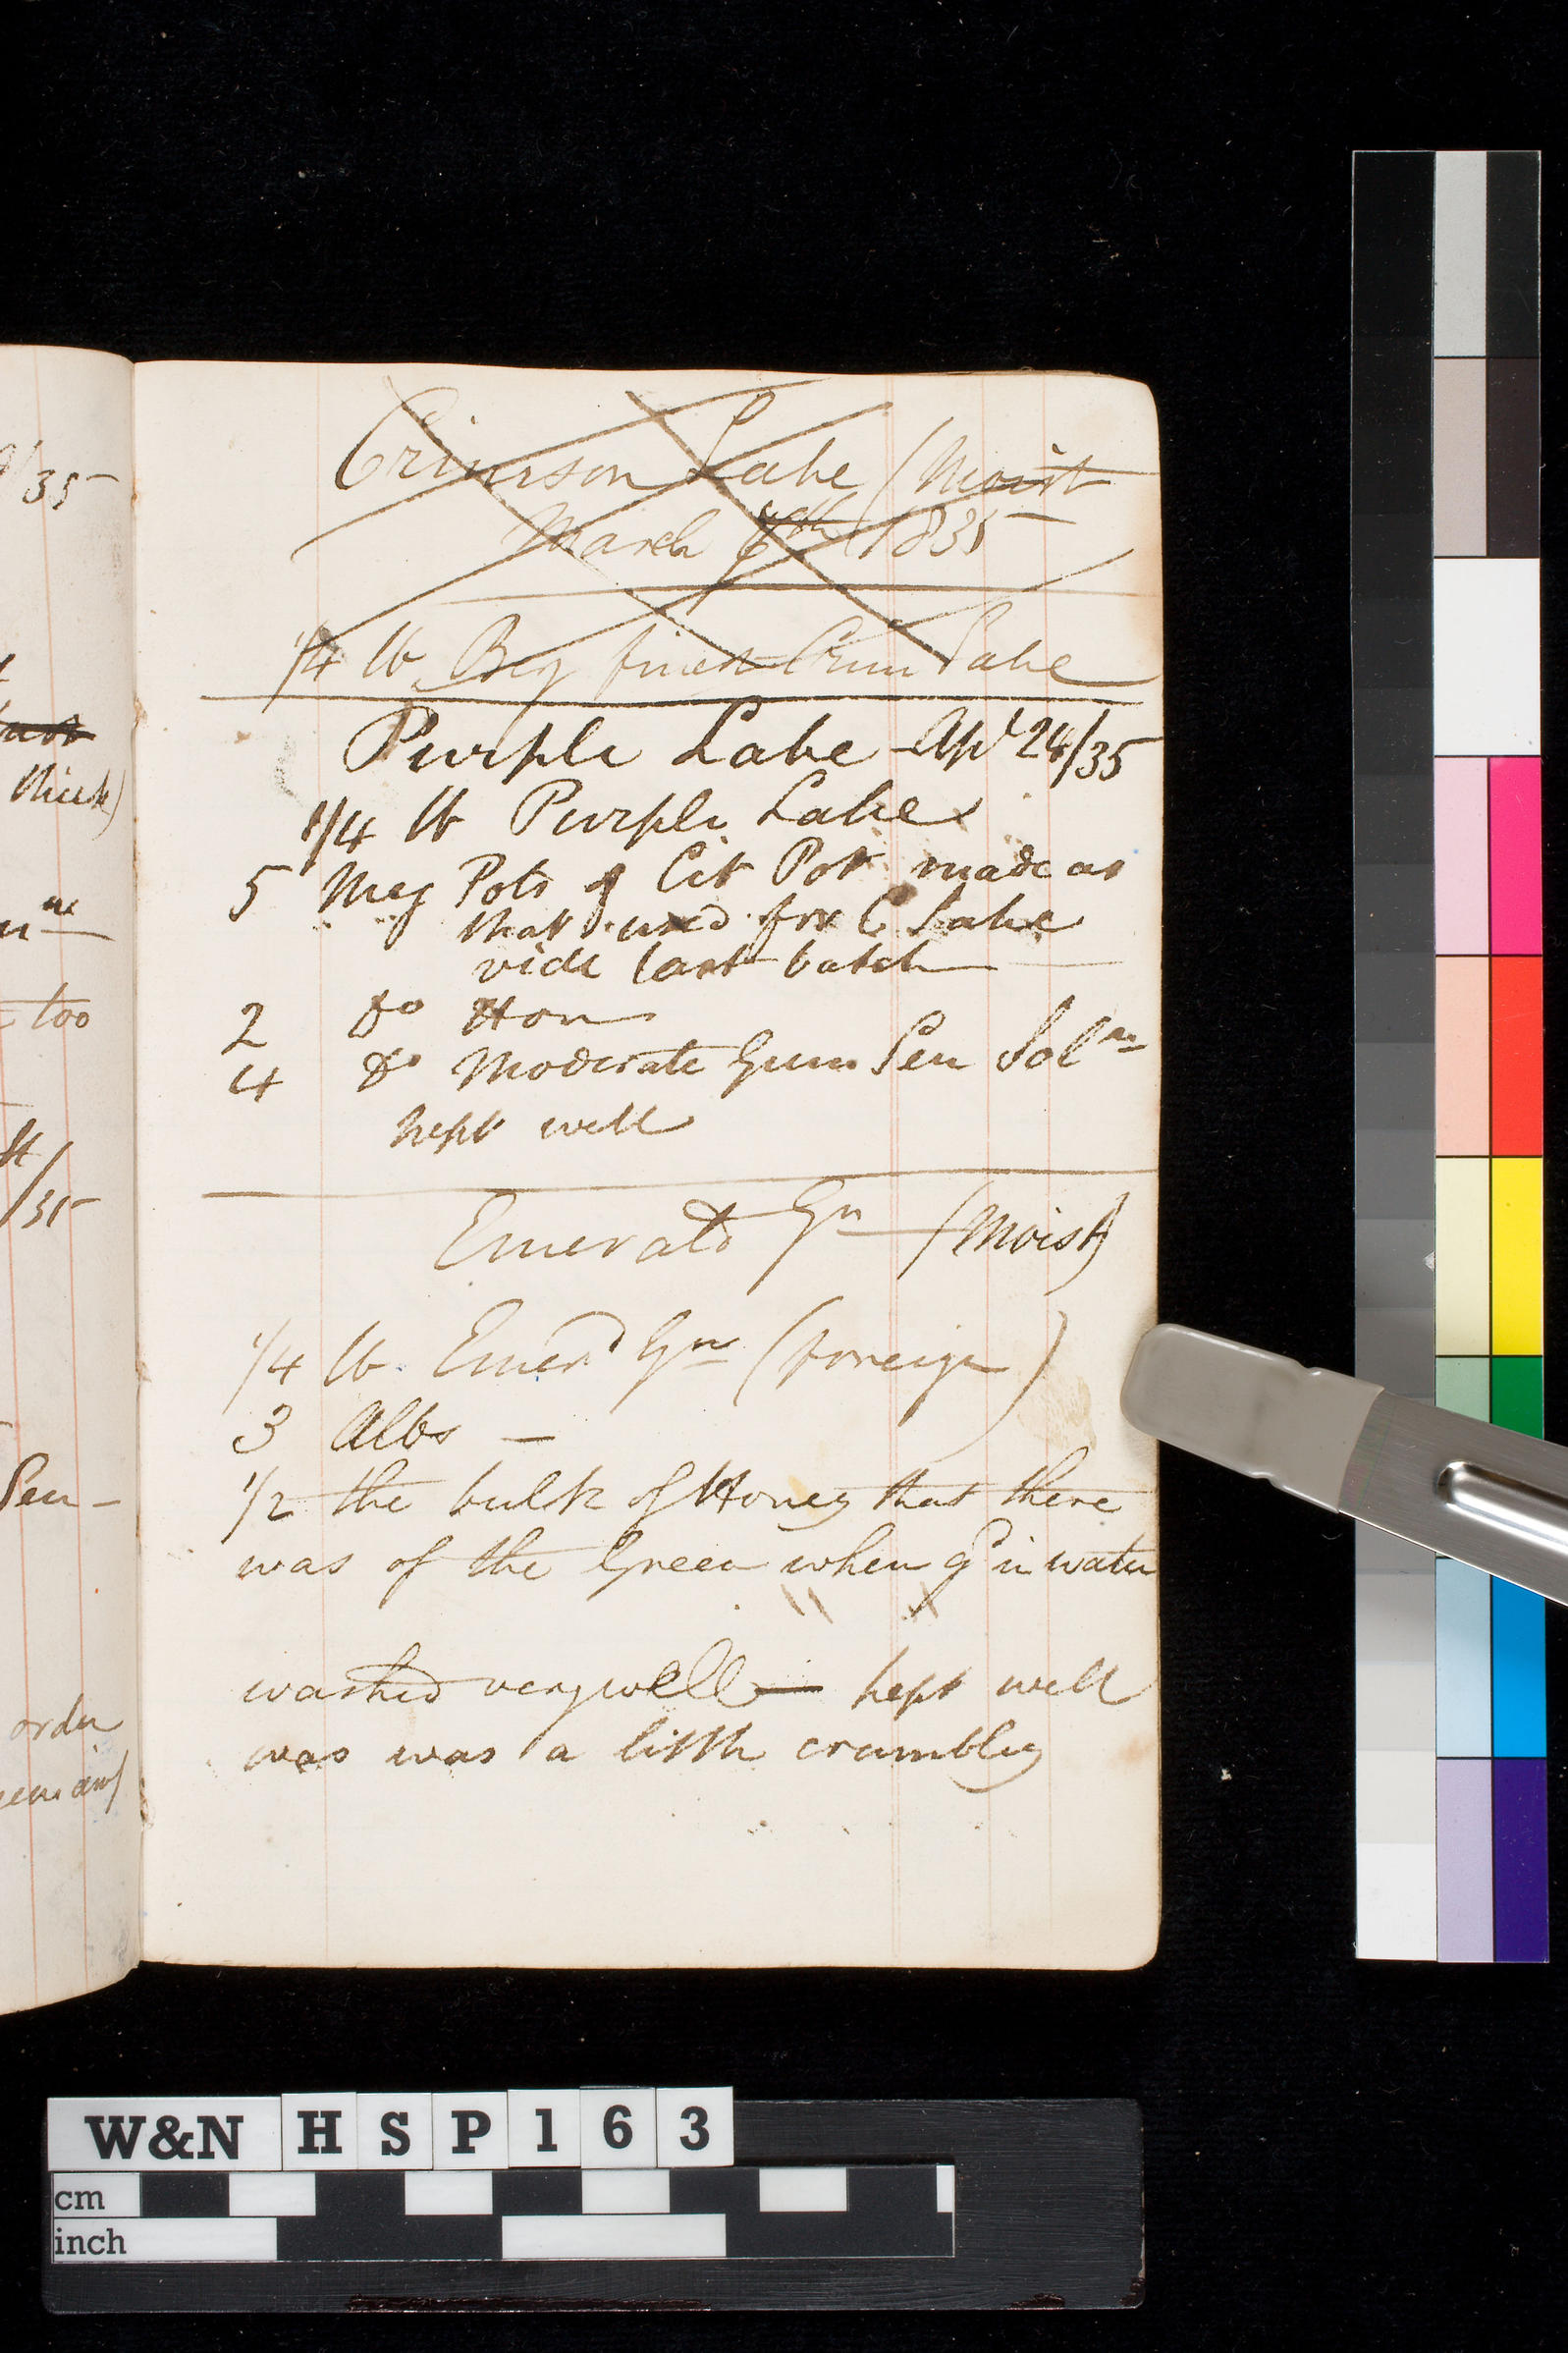 Crimson Lake (Moist
March 6th 1835
1/4 lb Beg finest Crim Lake
Purple Lake Apl 24/35
1/4 lb Purple Lake
5 Meg Pots of Cit Pot made as
that used for C Lake
vide last batch
2 Do Hon
4 Do Moderate Gum Sen Soln
kept well
Emerald Gn (Moist)
1/4 lb. Emerd Grn (foreign)
3 Albs —
1/2 the bulk of Honey that there
was of the Green when gd in water
washed very well — kept well
was was a little crumbley
/35
thick)
too
/35
Sen —
order
W&N HSP163
cm
inch